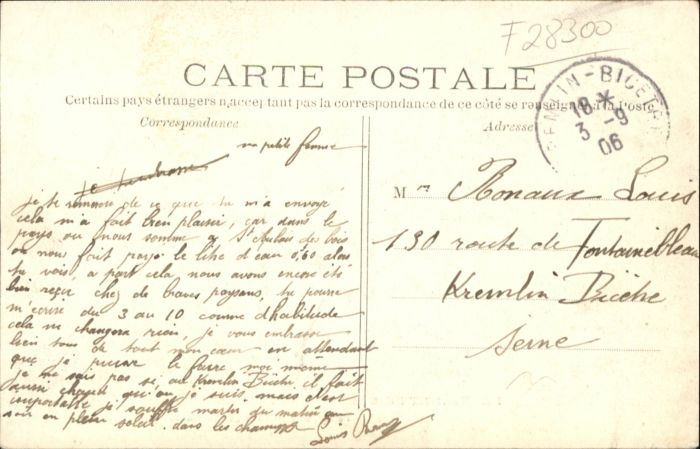 F28300
CARTE POSTALE
Certains pays étrangers n'acceptant pas la correspondance de ce côté se renseigner à la Poste
Correspondance
Adresse
KREMLIN-BICETRE
18 *
3 -9
06
ma petite femme
je te remercie de ce que tu m'a envoyé
cela m'a fait bien plaisir, car dans le
pays ou nous somme a St Aubin des bois
on nous fait payé le litre d'eau 0,60 alors
tu vois, a part cela, nous avons encore été
bien reçu chez de braves paysans, tu pourra
m'écrire du 3 au 10 comme d'habitude
cela ne changera rien, je vous embrasse
bien tous de tout mon cœur en attendant
que je puisse le faire moi même
je ne sais pas si au Kremlin Bicetre il fait
aussi chaud qu'ou je suis, mais c'est
je souffre du matin au
soir en plein soleil dans les champs
Louis
Mme Ronaux Louis
130 route de Fontainebleau
Kremlin Bicêtre
Seine